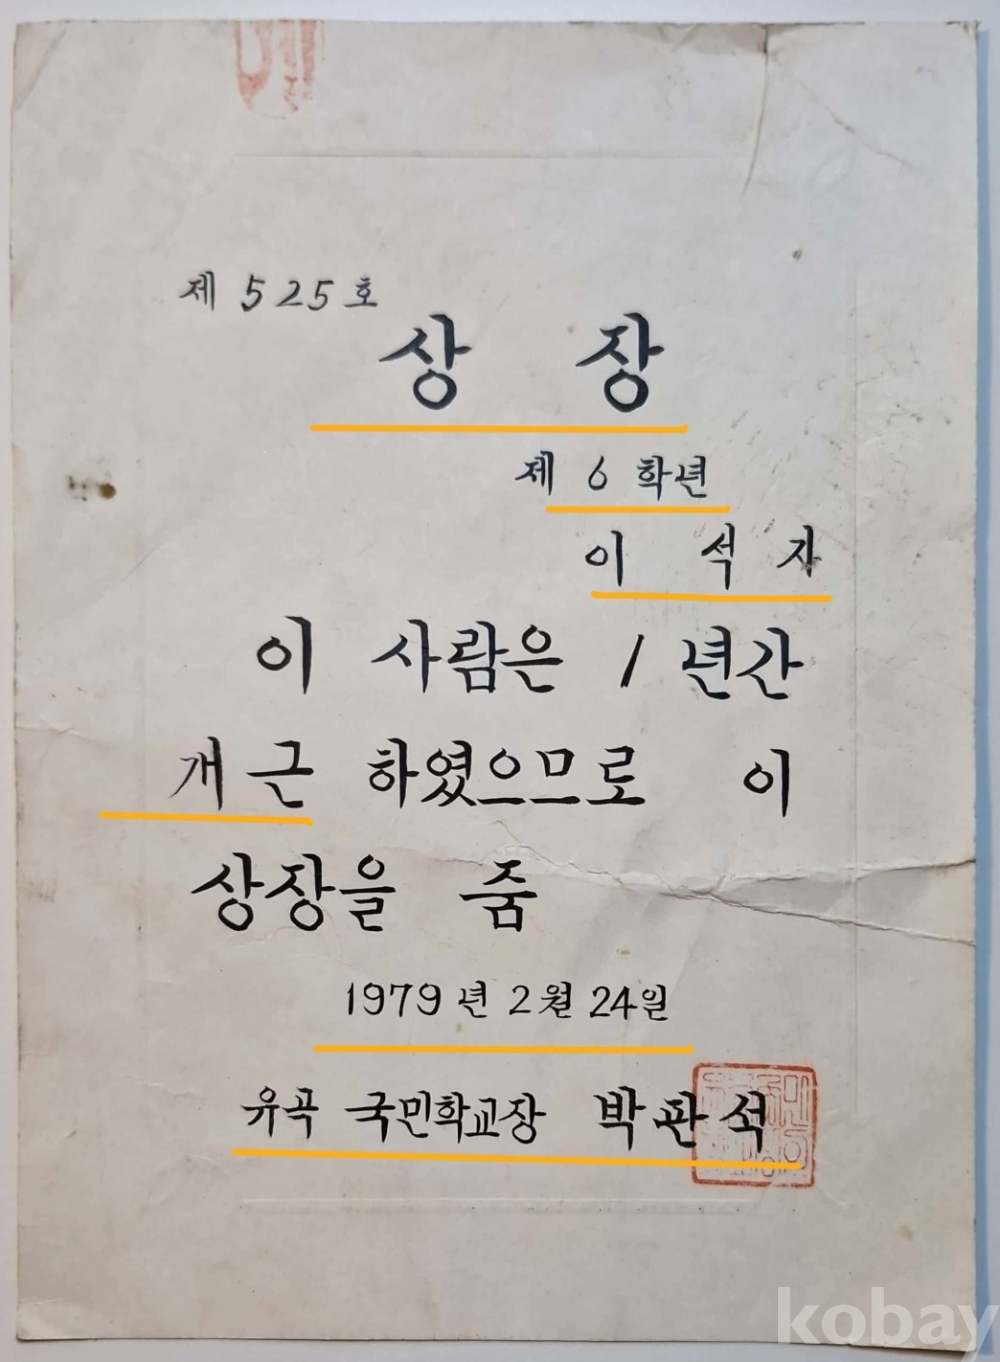 제 525호
상 장
제 6 학년
이 석 자
이 사람은 1 년간
개근 하였으므로 이
상장을 줌
1979년 2월 24일
유곡 국민학교장 박판석
kobay